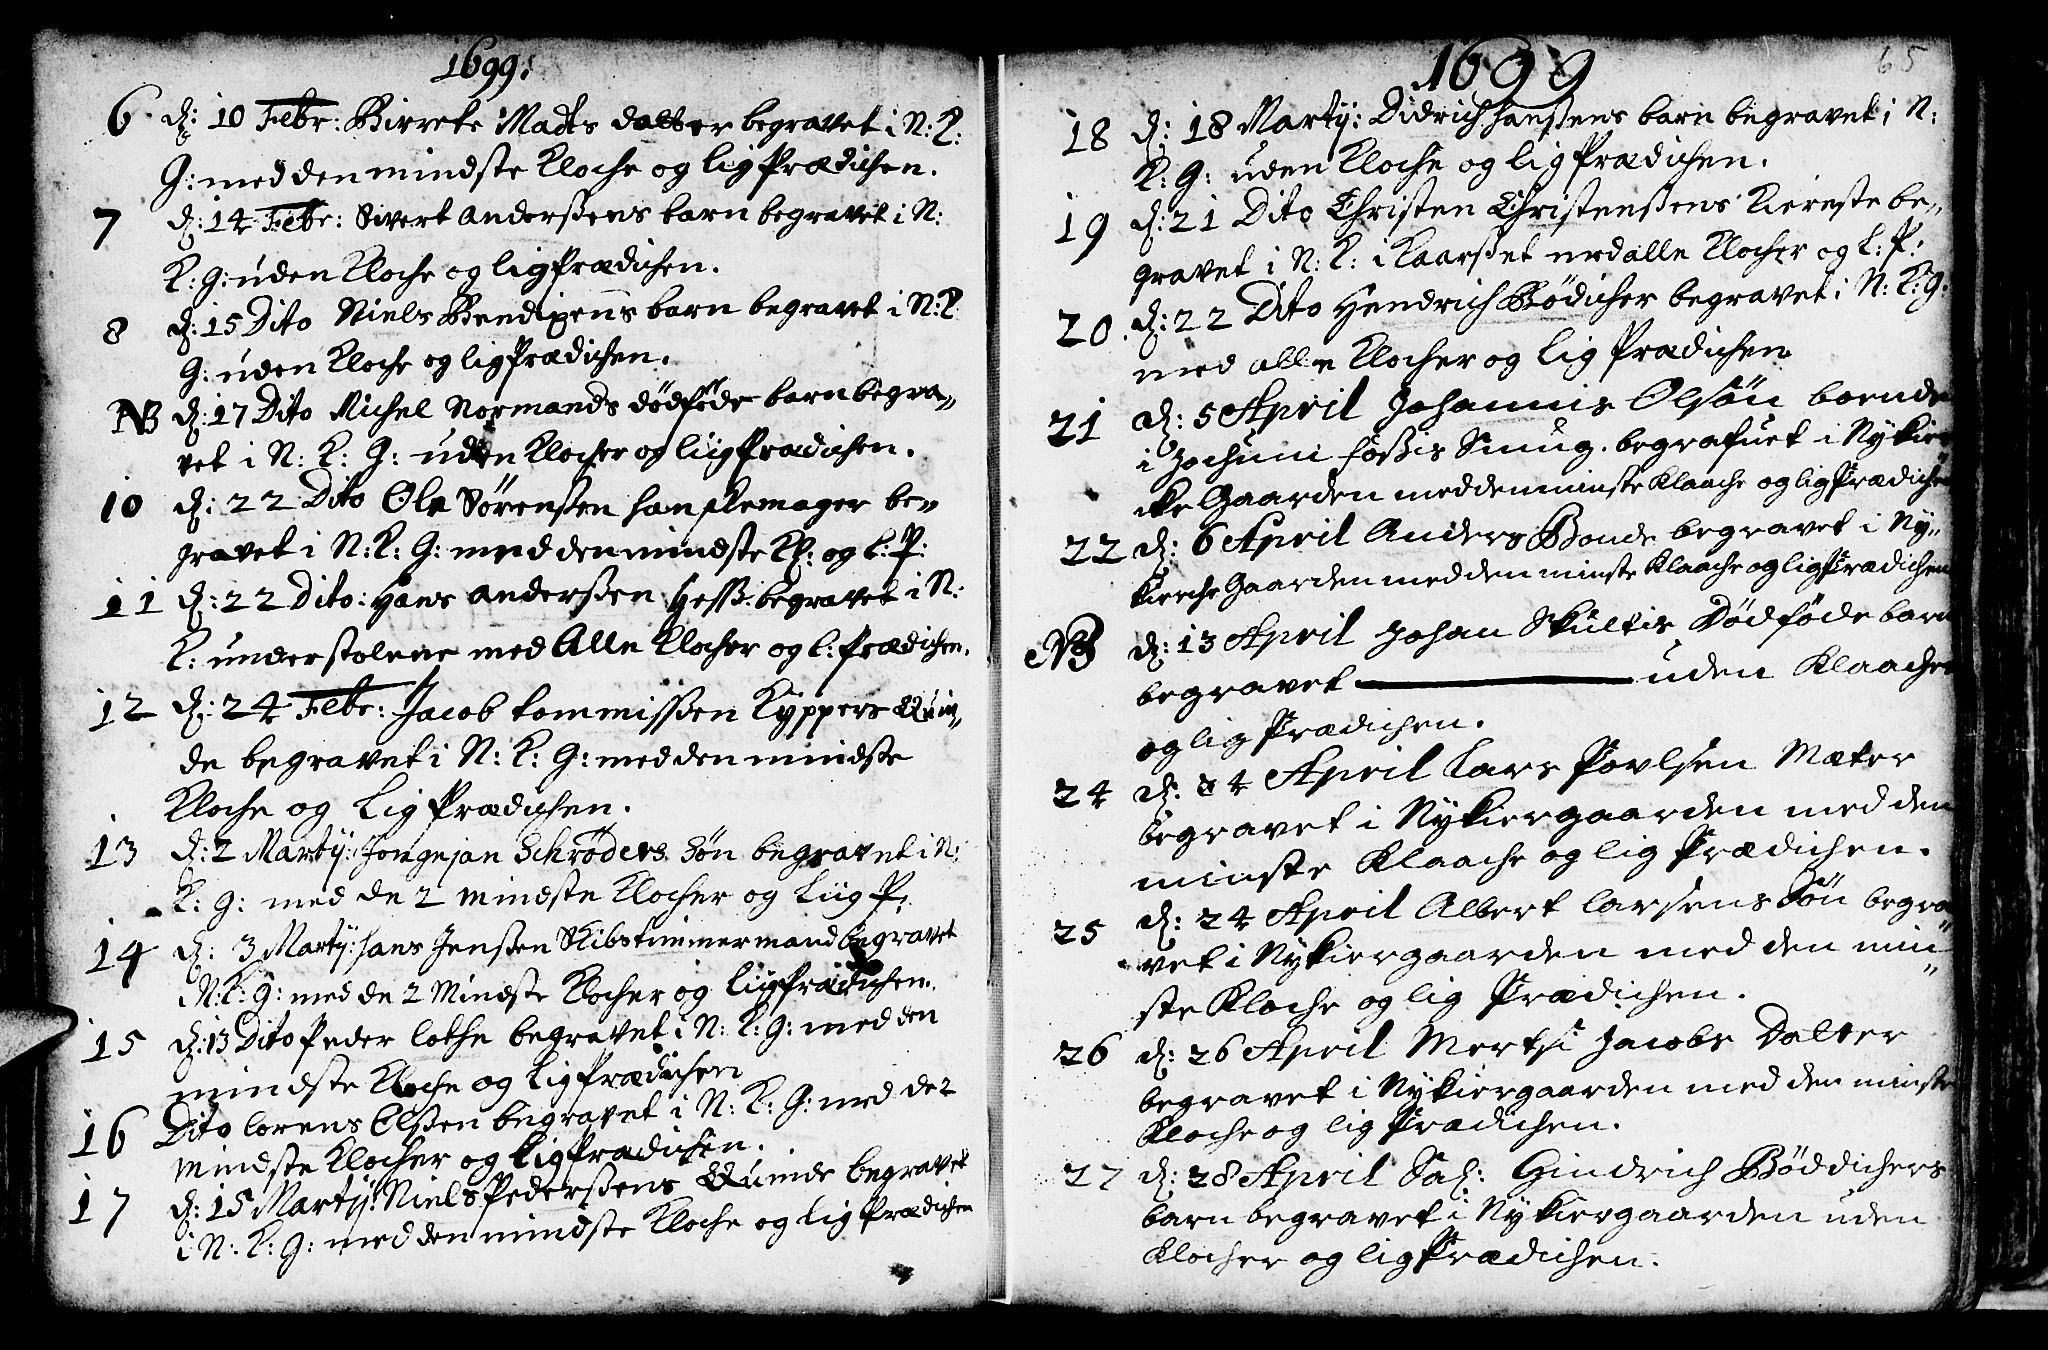 1699.
6 d: 10 Febr: Birrete Madts datter begravet i N: K:
G: med den mindste Kloche og lig Prædichen.
7 d: 14 Febr: Sivert Anderßens barn begravet i N:
K: G: uden Kloche og lig Prædichen.
8 d: 15 Dito Niels Bendixens barn begravet i N: K:
G: uden Kloche og lig Prædichen.
NB d: 17 Dito Michel Normands dödföde barn begra„
vet i N: K: G: uden Klocher og liig Prædichen.
10 d: 22 Dito Ole Sörenßen hanskemager be„
gravet i N: K: G: med den mindste Kl: og l: P:
11 d: 22 Dito: Hans Anderßen Hesß begravet i N:
K: under stolene med Alle Klocher og l: Prædichen.
12 d: 24 Febr: Jacob tommisßen Kyppers Quin„
de begravet i N: K: G: med den mindste
Kloche og Lig Prædichen.
13 d: 2 Martij: Jongejan Schröders Sön begravet i N:
K: G: med de 2 mindste Klocher og Liig P:
14 d: 3 Martij: hans Jenßen Skibstimmermand begravet
N: K: G: med de 2 Mindste Klocher og liig Prædichen.
15 d: 13 Dito Peder lothe begravet i N: K: G: med den
mindste Kloche og Lig Prædichen
16 Dito lorens Olßen begravet i N: K: G: med de 2
mindste Klocher og Lig Prædichen.
17 d: 15 Martij: Niels Pederßens Quinde begravet
i N: K: G: med den mindste Kloche og lig Prædichen
1699
65
18 d: 18 Martij: Didrich hanßens barn begravet i N:
K: G: uden Kloche og lig Prædichen.
19 d: 21 Dito Christen Christenßens Kiereste be„
gravet i N: K: i Kaarßet med alle Klocher og l: P:
20. d: 22 Dito Hendrich Bödicher begravet i N: K: G:
med alle Klocher og lig Prædichen
21 d: 5 April Johannis Olsön boende
i Jochum Smug. begrafuet i Nykier
cke Gaarden med den minste Klaache og lig Prædichen
22 d: 6 April Anders Bonde begravet i Ny„
kierche Gaarden med den minste Klaache og lig Prædichen
NB d: 13 April Johan Skultis Dödföde barn
begravet uden Klaacher
og lig Prædichen.
24 d: 24 April Lars Povlsen Mæter
begravet i Nykiergaarden med den
minste Klaache og lig Prædichen.
25 d: 24 April Albert larsens Sön begra„
vet i Nykiergaarden med den min„
ste Kloche og lig Prædichen.
26 d: 26 April Jacobs Datter
begravet i Nykiergaarden med den minste
Kloche og lig Prædichen.
27 d: 28 April Sal: Hindrich Böddichers
barn begravet i Nykiergaarden uden
Klocher og lig Prædichen.